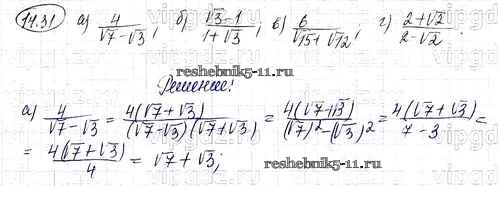 14.31 а) 4/(√7-√3), б) (√3-1)/(1+√3), в) 6/(√15+√12), г) (2+√2)/(2-√2).
reshebnik5-11.ru
Решение:
reshebnik5-11.ru
а) 4/(√7-√3) = 4(√7+√3)/((√7-√3)(√7+√3)) = 4(√7+√3)/((√7)²-(√3)²) = 4(√7+√3)/(7-3) =
= 4(√7+√3)/4 = √7+√3;
reshebnik5-11.ru